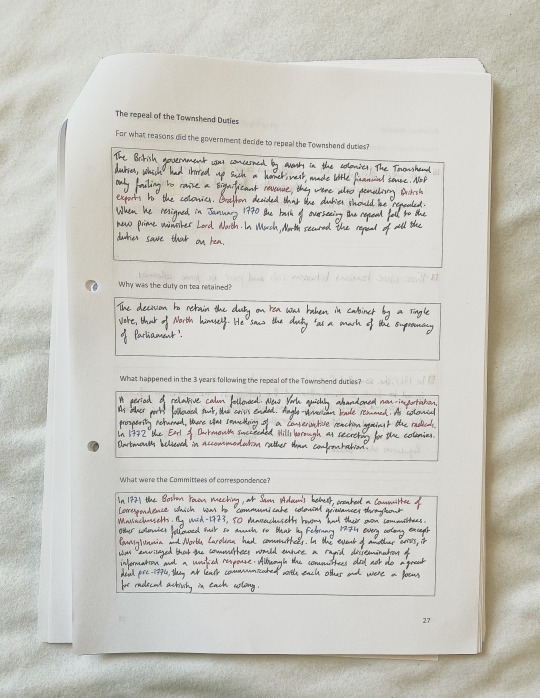 The repeal of the Townshend Duties
For what reasons did the government decide to repeal the Townshend duties?
The British government was concerned by events in the colonies. The Townshend
duties, which had stirred up such a hornet's nest, made little financial sense. Not
only failing to raise a significant revenue, they were also penalising British
exports to the colonies. Grafton decided that the duties should be repealed.
When he resigned in January 1770 the task of overseeing the repeal fell to the
new prime minister Lord North. In March, North secured the repeal of all the
duties save that on tea.
Why was the duty on tea retained?
The decision to retain the duty on tea was taken in cabinet by a single
vote, that of North himself. He saw the duty 'as a mark of the supremacy
of Parliament'.
What happened in the 3 years following the repeal of the Townshend duties?
A period of relative calm followed. New York quickly abandoned non-importation.
As other ports followed suit, the crisis ended. Anglo-American trade resumed. As colonial
prosperity returned, there was something of a conservative reaction against the radicals.
In 1772 the Earl of Dartmouth succeeded Hillsborough as secretary for the colonies.
Dartmouth believed in accommodation rather than confrontation.
What were the Committees of correspondence?
In 1771 the Boston town meeting, at Sam Adam's behest, created a Committee of
Correspondence which was to communicate colonial grievances throughout
Massachusetts. By mid-1773, 50 Massachusetts towns had their own committees.
Other colonies followed suit so much so that by February 1774 every colony except
Pennsylvania and North Carolina had committees. In the event of another crisis, it
was envisaged that the committees would ensure a rapid dissemination of
information and a unified response. Although the committees did not do a great
deal pre-1774, they at least communicated with each other and were a focus
for radical activity in each colony.
27